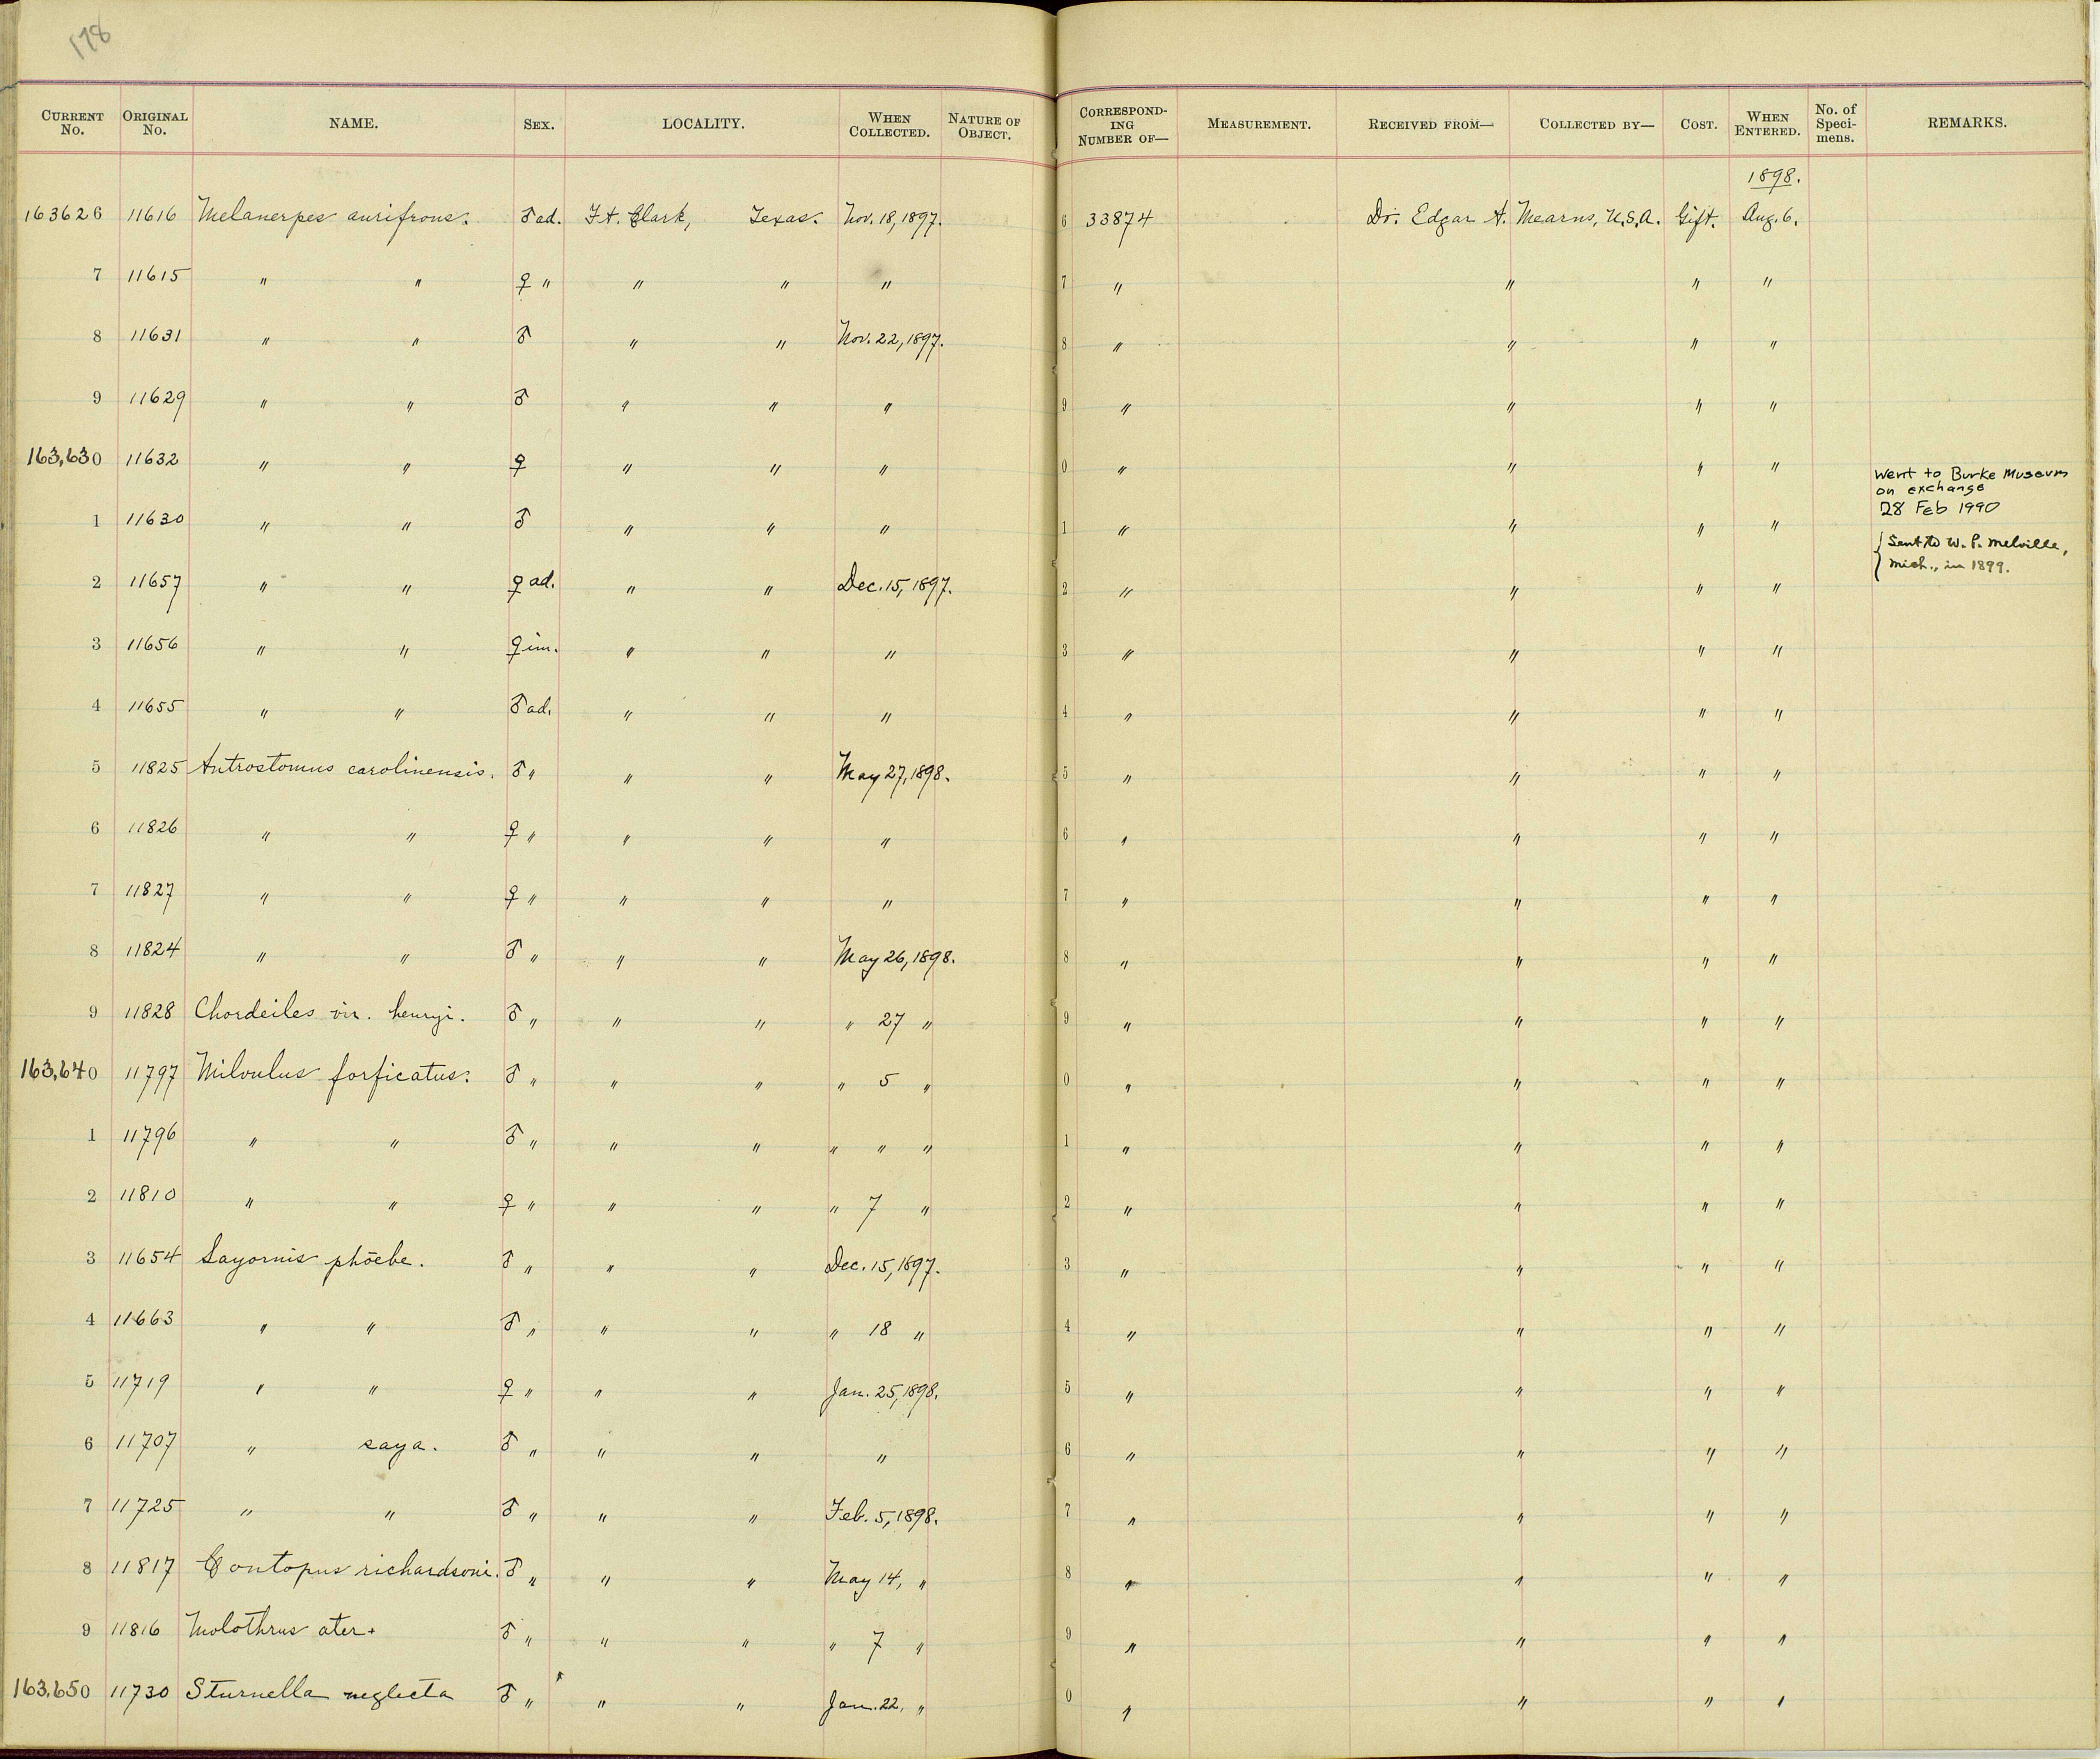 178
CURRENT No. ORIGINAL No. NAME. SEX. LOCALITY. WHEN COLLECTED. NATURE OF OBJECT. CORRESPONDING NUMBER OF— MEASUREMENT. RECEIVED FROM— COLLECTED BY— COST. WHEN ENTERED. No. of Specimens. REMARKS.
1898.
163626 11616 Melanerpes aurifrons. ♂ ad. Ft. Clark, Texas. Nov. 18, 1897. 6 33874 Dr. Edgar A. Mearns, U.S.A. Gift. Aug. 6.
7 11615 " " ♀ " " " " 7 " " " "
8 11631 " " ♂ " " Nov. 22, 1897. 8 " " " "
9 11629 " " ♂ " " " 9 " " " "
163,630 11632 " " ♀ " " " 0 " " " " Went to Burke Museum
on exchange
28 Feb 1990
1 11630 " " ♂ " " " 1 " " " " { Sent to W. P. Melville,
Mich., in 1899.
2 11657 " " ♀ ad. " " Dec. 15, 1897. 2 " " " "
3 11656 " " ♀ im. " " " 3 " " " "
4 11655 " " ♂ ad. " " " 4 " " " "
5 11825 Antrostomus carolinensis. ♂ " " " May 27, 1898. 5 " " " "
6 11826 " " ♀ " " " " 6 " " " "
7 11827 " " ♀ " " " " 7 " " " "
8 11824 " " ♂ " " " May 26, 1898. 8 " " " "
9 11828 Chordeiles vir. henryi. ♂ " " " " 27 " 9 " " " "
163,640 11797 Milvulus forficatus. ♂ " " " " 5 " 0 " " " "
1 11796 " " ♂ " " " " " " 1 " " " "
2 11810 " " ♀ " " " " 7 " 2 " " " "
3 11654 Sayornis phoebe. ♂ " " " Dec. 15, 1897. 3 " " " "
4 11663 " " ♂ " " " " 18 " 4 " " " "
5 11719 " " ♀ " " " Jan. 25, 1898. 5 " " " "
6 11707 " saya. ♂ " " " " 6 " " " "
7 11725 " " ♂ " " " Feb. 5, 1898. 7 " " " "
8 11817 Contopus richardsoni. ♂ " " " May 14, " 8 " " " "
9 11816 Molothrus ater. ♂ " " " " 7 " 9 " " " "
163,650 11730 Sturnella neglecta ♂ " " " Jan. 22, " 0 " " " "